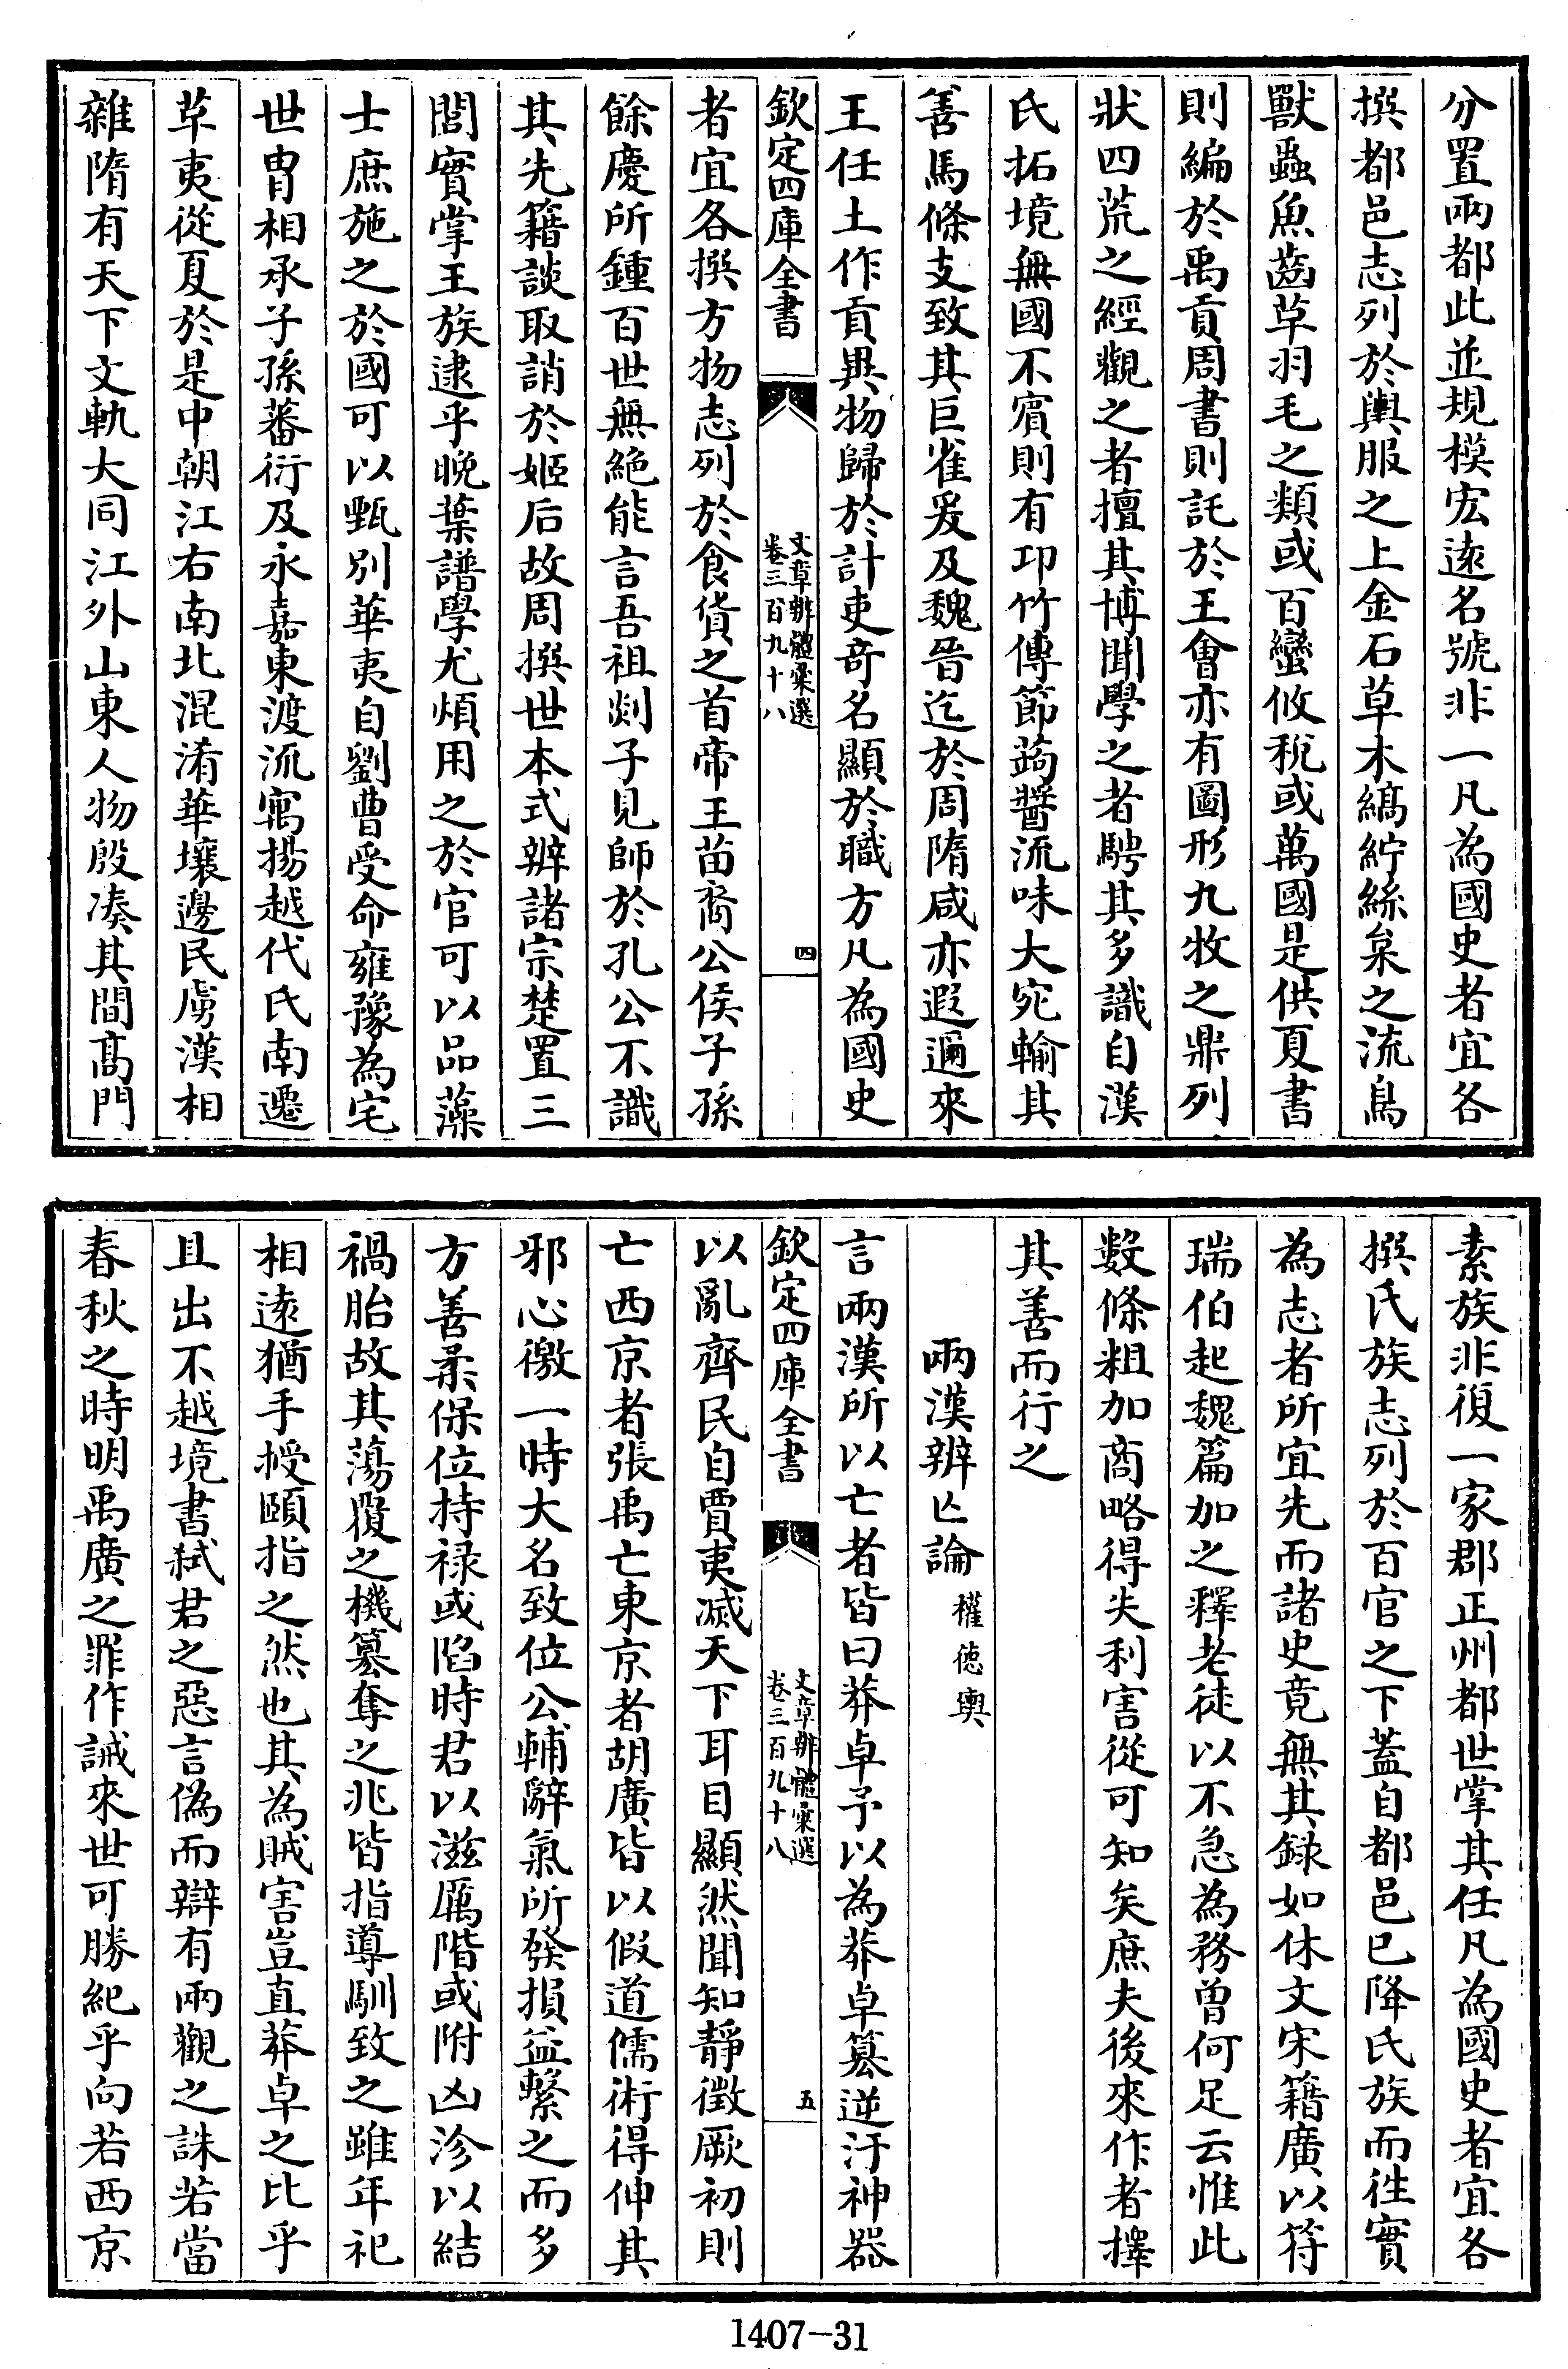 分置兩都此並規模宏逺名號非一凡為國史者宜各
撰都邑志列於輿服之上金石草木縞紵絲枲之流鳥
獸蟲魚齒革羽毛之類或百蠻攸税或萬國是供夏書
則編於禹貢周書則託於王㑹亦有圖形九牧之鼎列
狀四荒之經觀之者擅其博聞學之者騁其多識自漢
氏拓境無國不賔則有卭竹傳節蒟醬流味大宛輸其
善馬條支致其巨雀爰及魏晉迄於周隋咸亦遐邇來
王任土作貢異物歸於計吏竒名顯於職方凡為國史
欽定四庫全書
文章辨體彚選
卷三百九十八
四
者宜各撰方物志列於食貨之首帝王苗裔公侯子孫
餘慶所鍾百世無絶能言吾祖郯子見師於孔公不識
其先籍談取誚於姬后故周撰世本式辨諸宗楚置三
閭實掌王族逮乎晚葉譜學尤煩用之於官可以品藻
士庶施之於國可以甄別華夷自劉曹受命雍豫為宅
世胄相承子孫蕃衍及永嘉東渡流寓揚越代氏南遷
革夷從夏於是中朝江右南北混淆華壤邊民虜漢相
雜隋有天下文軌大同江外山東人物殷湊其間髙門
素族非復一家郡正州都世掌其任凡為國史者宜各
撰氏族志列於百官之下蓋自都邑已降氏族而徃實
為志者所宜先而諸史竟無其録如休文宋籍廣以符
瑞伯起魏篇加之釋老徒以不急為務曾何足云惟此
數條粗加商略得失利害從可知矣庶夫後來作者擇
其善而行之
兩漢辨亡論
權徳輿
言兩漢所以亡者皆曰莽卓予以為莽卓篡逆汙神器
欽定四庫全書
文章辨體彚選
卷三百九十八
五
以亂齊民自賈夷滅天下耳目顯然聞知靜徵厥初則
亡西京者張禹亡東京者胡廣皆以假道儒術得伸其
邪心徼一時大名致位公輔辭氣所發損益繫之而多
方善柔保位持禄或陷時君以滋厲階或附凶沴以結
禍胎故其蕩覆之機篡奪之兆皆指導馴致之雖年祀
相逺猶手授頤指之然也其為賊害豈直莽卓之比乎
且出不越境書弑君之惡言偽而辯有兩觀之誅若當
春秋之時明禹廣之罪作誡來世可勝紀乎向若西京
1407-31